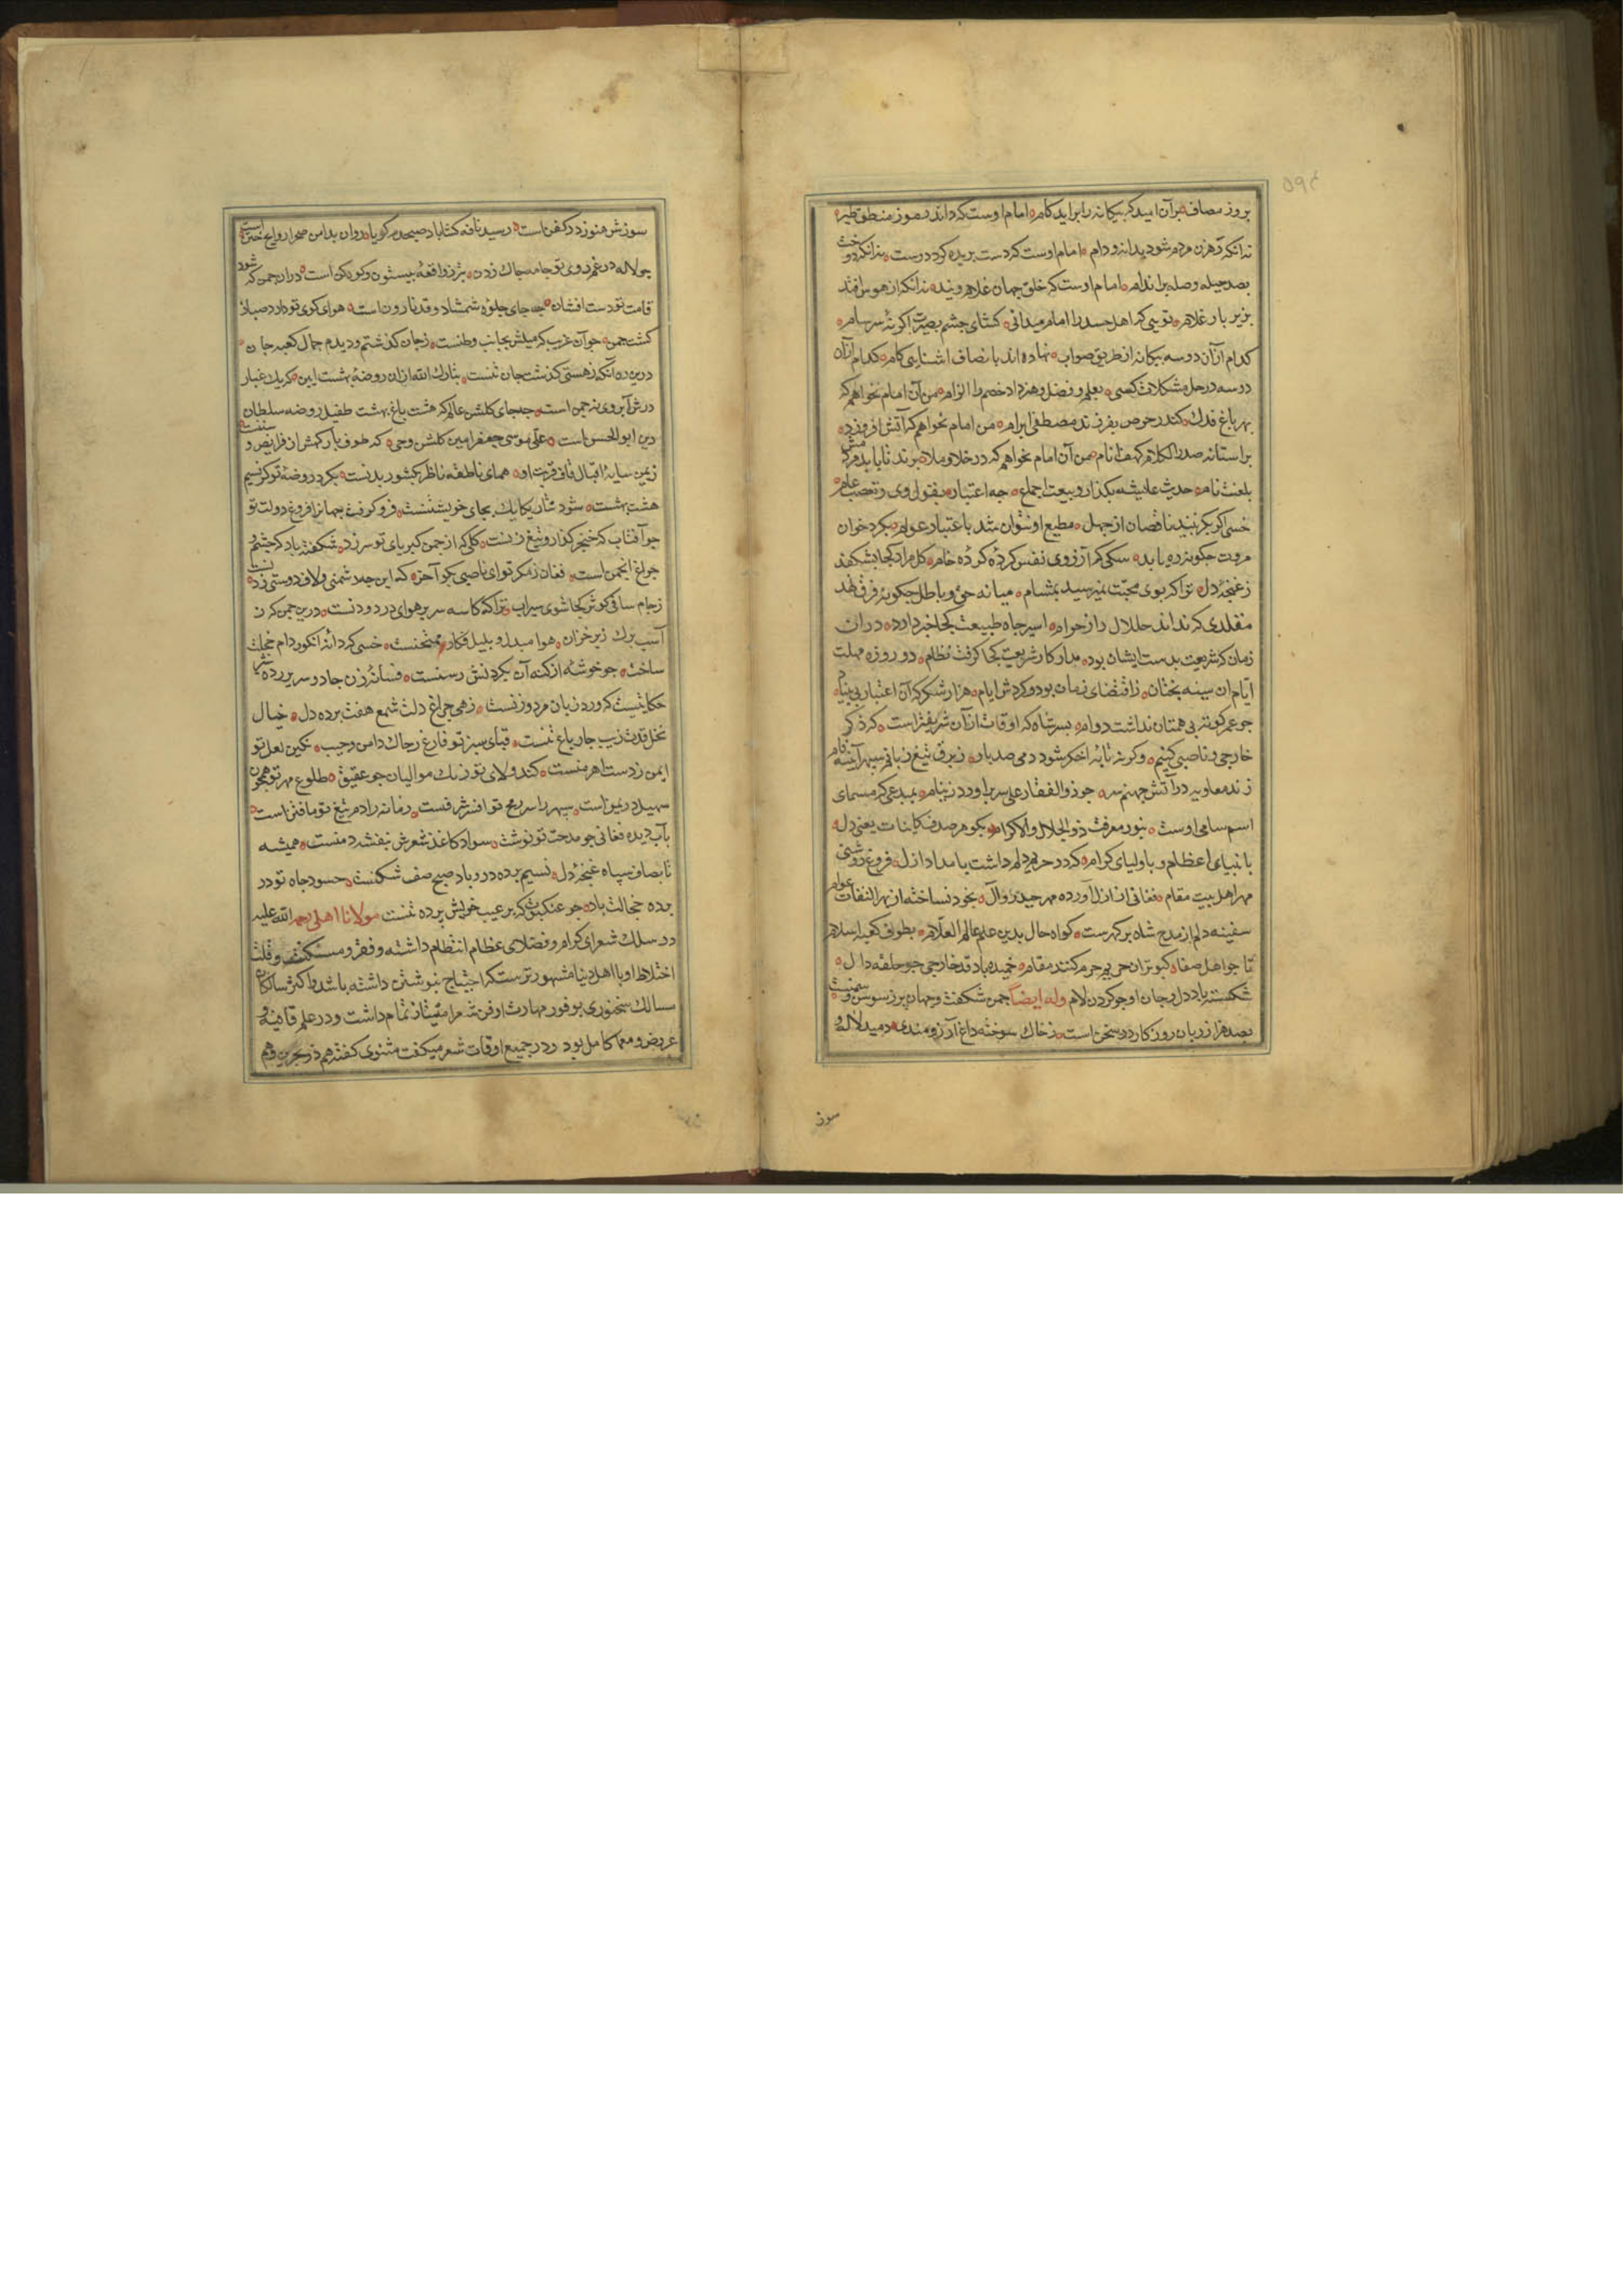 ۵۹۴
بروز مصاف برآن امید که بیکانه را براید کام امام اوست که داند رموز منطق طیر
نه انکه رهزن مردم شود بدانه و دام امام اوست که دست بریده کرد درست نه انکه دوخت
بصد حیله وصله بر اندام امام اوست که خلق جهان غلام ویند نه انکه از هوس افتد
بزیر بار غلام تویی که اهل حسد را امام میدانی کشای چشم بصیرت اکر نهٔ سرسام
کدام ازآن دو سه بیکانه از طریق صواب نهاده اند بانصاف اشنایی کام کدام ازآن
دو سه در حل مشکلات کسی بعلم و فضل و هنر داد خصم را الزام من آن امام نخواهم که
بهر باغ فدک کند ز حرص بفرزند مصطفی ابرام من امام نخواهم که آتش افروزد
بر استانه صدر الکلام کهف انام من آن امام نخواهم که در خلا و ملا برند تا بابد مردمش
بلعنت نام حدیث عایشه بکذار و بیعت اجماع چه اعتبار بقول وی و تعصب عام
خسی اکر بکزیبند ناقصان از جهل مطیع او نتوان شد باعتبار عوام بکرد خوان
مروت چکونه ره یابد سکی که آرزوی نفس کرده کرده خام کل مراد کجا بشکفد
ز غنچهٔ دل ترا که بوی محبت نمیرسید بمشام میانه حق و باطل چکونه فرق نهد
مقلدی که نداند حلال را ز حرام اسیر جاه طبیعت کجا خبر دارد دران
زمان که شریعت بدست ایشان بود مدار کار شریعت کجا کرفت نظام دو روزه مهلت
ایام ان سیه بختان ز اقتضای زمان بود و کردش ایام هزار شکر که آن اعتبار بی بنیاد
چو عمر کوته بی همتان نداشت دوام بسر شاه که اوقات ازآن شریفتراست که ذکر
خارجی و ناصبی کنیم وکرنه تابهٔ اخکر شود دمی صد بار ز برق تیغ زبانم سپهر آینه فام
زند معاویه در آتش جهنم سر چو ذوالفقار علی سر براورد ز نیام بمبدعی که مسمای
اسم سامی اوست بنور معرفت ذو الجلال والاکرام بکوهر صدف کاینات یعنی دل
بانبیای عظام و باولیای کرام که در حریم دلم داشت بامداد ازل فروغ روشنی
مهر اهل بیت مقام فغانی از ازل آورده مهر حیدر و آل بخود نساخته از بهر التفات عوام
سفینه دلم از مدح شاه پر کهرست کواه حال بدین علم عالم العلام بطوف کعبه اسلام
تا چو اهل صفا کبوتران حریم حرم کنند مقام خمیده باد قد خارجی چو حلقه دال
شکسته باد دل و جان او چو کردن لام وله ایضا چمن شکفت و جهان پر ز سوسن و سمنست
بصد هزار زبان روزکار در سخن است ز خاک سوخته داغ آرزومندی دمید لاله و
سوز
سوزش هنوز در کفن است رسید نافه کشا باد صبحدم کویا روان بدامن صحرا روایح ختن است
چو لاله در غم روی تو جامه چاک زدن به ز واقعهٔ بیستون و کوهکن است دران چمن که شود
قامت تو دست افشان چه جای جلوه شمشاد و قد نارون است هوای کوی تو دارد صبا ز
کشت چمن چو آن غریب که میلش بجانب وطنست ز جان کذشتم و دیدم جمال کعبه جان
درین ره آنکه ز هستی کذشت جان تنست تبارک الله ازان روضهٔ بهشت ایین که یک غبار
درش آبروی نه چمن است چه جای کلشن عالم که هشت باغ بهشت طفیل روضه سلطان
دین ابو الحسن است علی موسی جعفر امین کلشن وحی که طوف بارکهش از فرایض و سننست
زیمن سایهٔ اقبال قاف قربت او همای ناطقه ناظر بکشور بدنست بکرد روضهٔ تو کر نسیم
هشت بهشت شود نثار یکایک بجای خویشتنست فرو کرفت جهانرا فروغ دولت تو
چو آفتاب که خنجر کذار و تیغ زنست کلی که از چمن کبریای تو سر زد شکفته باد که چشم و
چراغ انجمن است فغان ز مکر تو ای ناصبی بکو آخر که این چه دشمنی و لاف دوستی زدنست
ز جام ساقی کوثر کجا شوی سیراب ترا که کاسه سر پر هوای درد و دنست درین چمن که ز
آسیب برک ریز خزان هوا مبدل و بلبل فکار و ممتحنست خسی که دانهٔ انکور دام خجلت
ساخت چو خوشهٔ از کنه آن بکردنش رسنست فسانهٔ زن جادو سریر رده شما
حکایتیست که ورد زبان مرد و زنست زهی چراغ دلت شمع هفت پرده دل خیال
نخل قدت زیب چار باغ تنست قبای سبز تو فارغ ز چاک دامن و جیب نکین لعل تو
ایمن ز دست اهرمنست کند ولای تو رنک موالیان چو عقیق طلوع مهر تو همچون
سهیل در یمن است سپهر را سر رمح تو افسر شرفست زمانه را دم تیغ تو مافتن است
بآب دیده فغانی چو مدحت تو نوشت سواد کاغذ شعرش بنفشه دمنست همیشه
تا بصاف سپاه غنچهٔ دل نسیم پرده در و باد صبح صف شکنست حسود جاه تو در
پرده خجالت باد چو عنکبوت که بر عیب خویش پرده تنست مولانا اهلی رحمه الله علیه
در سلک شعرای کرام و فضلای عظام انتظام داشته و فقر و مسکنت و قلت
اختلاط او با اهل دنیا مشهورترست که احتیاج بنوشتن داشته باشد و اکثر سالکان
مسالک سخنوری بوفور مهارت او در فن شعر امتیاز تمام داشت و در علم قافیه و
عروض و معما کامل بود و در جمیع اوقات شعر میکفت مثنوی کفته هم ذو بحرین و هم